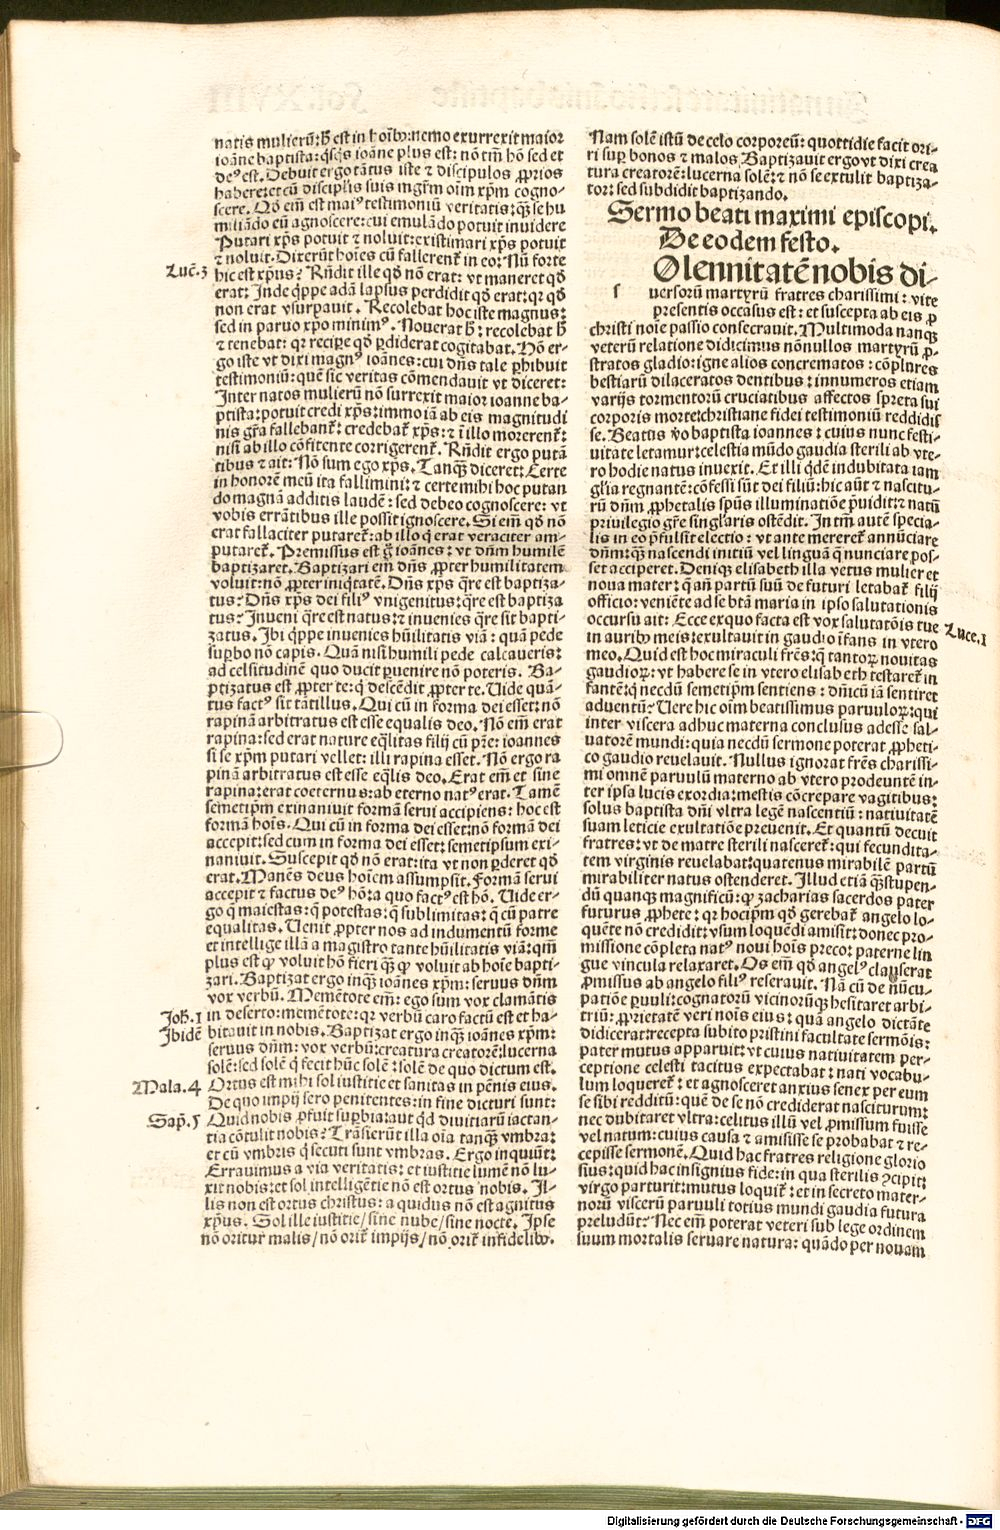 natis mulierū: ħ est in hoīb9: nemo exurrexit maior
ioāne baptista: qsqs ioāne plus est: nō tm̄ hō sed et
de9 est. Debuit ergo tātus iste ⁊ discipulos ꝓprios
habere: et cū disciplis suis mgr̄m oīm xp̄m cogno-
scere. Qd̄ em̄ est mai9 testimoniū veritatis: qꝫ se hu
miliādo eū agnoscere: cui emulādo potuit inuidere
Putari xp̄s potuit ⁊ noluit: existimari xp̄s potuit
⁊ noluit. Dixerūt hoīes cū fallerent᷑ in eo: Nū forte
Luc̄. 3
hic est xp̄us? Rn̄dit ille qd̄ nō erat: vt maneret qd̄
erat: Inde q̄ppe adā lapsus perdidit qd̄ erat: qr qd̄
non erat vsurpauit. Recolebat hoc iste magnus:
sed in paruo xp̄o minim9. Nouerat ħ: recolebat ħ
⁊ tenebat: qr recipe qd̄ ꝑdiderat cogitabat. Hō er-
go iste vt dixi magn9 ioānes: cui dn̄s tale ꝑhibuit
testimoniū: quē sic veritas cōmendauit vt diceret:
Inter natos mulierū nō surrexit maior ioanne ba-
ptista: potuit credi xp̄s: immo iā ab eis magnitudi
nis gr̄a fallebant᷑: credebat᷑ xp̄s: ⁊ ī illo morerent᷑:
nisi ab illo cōfitente corrigerent᷑. Rn̄dit ergo putā
tibus ⁊ ait: Nō sum ego xp̄s. Tanqꝫ diceret: Certe
in honorē meū ita fallimini: ⁊ certe mihi hoc putan
do magnā additis laudē: sed debeo cognoscere: vt
vobis errātibus ille possit ignoscere. Si em̄ qd̄ nō
erat fallaciter putaret᷑: ab illo q̄ erat veraciter am-
putaret᷑. Premissus est ḡ ioānes: vt dn̄m humilē
baptizaret. Baptizari em̄ dn̄s ꝓpter humilitatem
voluit: nō ꝓpter iniq̄tatē. Dn̄s xp̄s q̄re est baptiza-
tus? Dn̄s xp̄s dei fili9 vnigenitus: q̄re est baptiza
tus? Inueni q̄re est natus: ⁊ inuenies q̄re sit bapti-
zatus. Ibi q̄ppe inuenies hūilitatis viā: quā pede
suꝑbo nō capis. Quā nisi humili pede calcaueris:
ad celsitudinē quo ducit ꝑuenire nō poteris. Ba-
ptizatus est ꝓpter te: q̄ descēdit ꝓpter te. Uide quā-
tus fact9 sit tātillus. Qui cū in forma dei esset: nō
rapinā arbitratus est esse equalis deo. Nō em̄ erat
rapina: sed erat nature eq̄litas filij cū pr̄e: ioannes
si se xp̄m putari vellet: illi rapina esset. Nō ergo ra
pinā arbitratus est esse eq̄lis deo. Erat em̄ et sine
rapina: erat coeternus: ab eterno nat9 erat. Tamē
semetip̄m exinaniuit formā serui accipiens: hoc est
formā hoīs. Qui cū in forma dei esset: nō formā dei
accepit: sed cum in forma dei esset: semetipsum exi-
naniuit. Suscepit qd̄ nō erat: ita vt non ꝑderet qd̄
erat. Manēs deus hoīem assumpsit. Formā serui
accepit ⁊ factus de9 hō: a quo fact9 est hō. Uide er-
go q̄ maiestas: q̄ potestas: q̄ sublimitas: q̄ cū patre
equalitas. Uenit ꝓpter nos ad indumentū forme
et intellige illā a magistro tante hūilitatis viā: qm̄
plus est ꝙ voluit hō fieri qꝫ ꝙ voluit ab hoīe bapti-
zari. Baptizat ergo inqꝫ ioānes xp̄m: seruus dn̄m
vox verbū. Memētote em̄: ego sum vox clamātis
Joh̄. 1
in deserto: memētote: qr verbū caro factū est et ha-
Ibidē
bitauit in nobis. Baptizat ergo inqꝫ ioānes xp̄m:
seruus dn̄m: vox verbū: creatura creatorē: lucerna
solē: sed solē q̄ fecit hūc solē: solē de quo dictum est.
Mala. 4
Ortus est mihi sol iustitie et sanitas in pēnis eius.
De quo impij sero penitentes: in fine dicturi sunt:
Sap̄. 5
Quid nobis ꝓfuit suꝑbia: aut qd̄ diuitiarū iactan-
tia cōtulit nobis? Trāsierūt illa oīa tanqꝫ vmbra:
et cū vmbris q̄ secuti sunt vmbras. Ergo inquiūt:
Errauimus a via veritatis: et iustitie lumē nō lu-
xit nobis: et sol intelligētie nō est ortus nobis. Il-
lis non est ortus christus: a quidus nō est agnitus
xp̄us. Sol ille iustitie/ sine nube/ sine nocte. Ipse
nō oritur malis/ nō orit᷑ impijs/ nō orit᷑ infidelib9.
Nam solē istū de celo corporeū: quottidie facit ori-
ri suꝑ bonos ⁊ malos Baptizauit ergo vt dixi crea
tura creatorē: lucerna solē: ⁊ nō se extulit baptiza-
tor: sed subdidit baptizando.
Sermo beati maximi episcopi.
De eodem festo.
sOlennitatē nobis di-
uersorū martyrū fratres charissimi: vite
presentis occasus est: et suscepta ab eis ꝓ
christi noīe passio consecrauit. Multimoda nanqꝫ
veterū relatione didicimus nōnullos martyrū ꝓ-
stratos gladio: igne alios concrematos: cōplures
bestiarū dilaceratos dentibus: innumeros etiam
varijs tormentorū cruciatibus affectos spreta sui
corporis morte: christiane fidei testimoniū reddidis
se. Beatus v̄o baptista ioannes: cuius nunc festi-
uitate letamur: celestia mūdo gaudia sterili ab vte-
ro hodie natus inuexit. Et illi q̄dē indubitata iam
gl̄ia regnantē: cōfessi sūt dei filiū: hic aūt ⁊ nascitu-
rū dn̄m ꝓphetalis sp̄us illuminatiōe ꝑuidit: ⁊ natū
priuilegio gr̄e singl̄aris ostēdit. In tm̄ autē specia-
lis in eo p̄fulsit electio: vt ante mereret᷑ annūciare
dn̄m: qꝫ nascendi initiū vel linguā q̄ nunciare pos-
set acciperet. Deniqꝫ elisabeth illa vetus mulier et
noua mater: q̄ añ partū suū de futuri letabat᷑ filij
officio: veniēte ad se btā maria in ipso salutationis
occursu ait: Ecce ex quo facta est vox salutatōis tue
Luce. 1
in aurib9 meis: exultauit in gaudio īfans in vtero
meo. Quid est hoc miraculi frēs: q̄ tantoꝝ nouitas
gaudioꝝ: vt habere se in vtero elisabeth testaret᷑ in
fantē: q̄ necdū semetip̄m sentiens: dn̄icū iā sentiret
aduentū? Uere hic oīm beatissimus paruuloꝝ: qui
inter viscera adhuc materna conclusus adesse sal-
uatorē mundi: quia necdū sermone poterat ꝓpheti-
co gaudio reuelauit. Nullus ignorat frēs charissi-
mi omnē paruulū materno ab vtero prodeuntē in-
ter ipsa lucis exordia: mestis cōcrepare vagitibus:
solus baptista dn̄i vltra legē nascentiū: natiuitatē
suam leticie exultatiōe preuenit. Et quantū decuit
fratres: vt de matre sterili nasceret᷑: qui fecundita-
tem virginis reuelabat: quatenus mirabilē partū
mirabiliter natus ostenderet. Illud etiā qꝫ stupen-
dū quanqꝫ magnificū: ꝙ zacharias sacerdos pater
futurus ꝓphete: qr hocip̄m qd̄ gerebat᷑ angelo lo-
quēte nō credidit: vsum loquēdi amisit: donec pro-
missione cōpleta nat9 noui hoīs preco: paterne lin
gue vincula relaxaret. Os em̄ qd̄ angel9 clauserat
ꝓmissus ab angelo fili9 reserauit. Nā cū de nūcu-
patiōe ꝑuuli: cognatorū vicinorūqꝫ hesitaret arbi-
triū: ꝓprietatē veri noīs eius: quā angelo dictāte
didicerat: recepta subito pristini facultate sermōis:
pater mutus apparuit: vt cuius natiuitatem per-
ceptione celesti tacitus expectabat: nati vocabu-
lum loqueret᷑: et agnosceret anxius senex per eum
se sibi redditū: quē de se nō crediderat nasciturum:
nec dubitaret vltra: celitus illū vel ꝓmissum fuisse
vel natum: cuius causa ⁊ amisisse se probabat ⁊ re-
cepisse sermonē. Quid hac fratres religione glorio
sius: quid hac insignius fide: in qua sterilis ꝯcipit:
virgo parturit: mutus loquit᷑: et in secreto mater-
norū viscerū paruuli totius mundi gaudia futura
preludūt? Nec em̄ poterat veteri sub lege ordinem
suum mortalis seruare natura: quādo per nouam
Digitalisierung gefördert durch die Deutsche Forschungsgemeinschaft - DFG